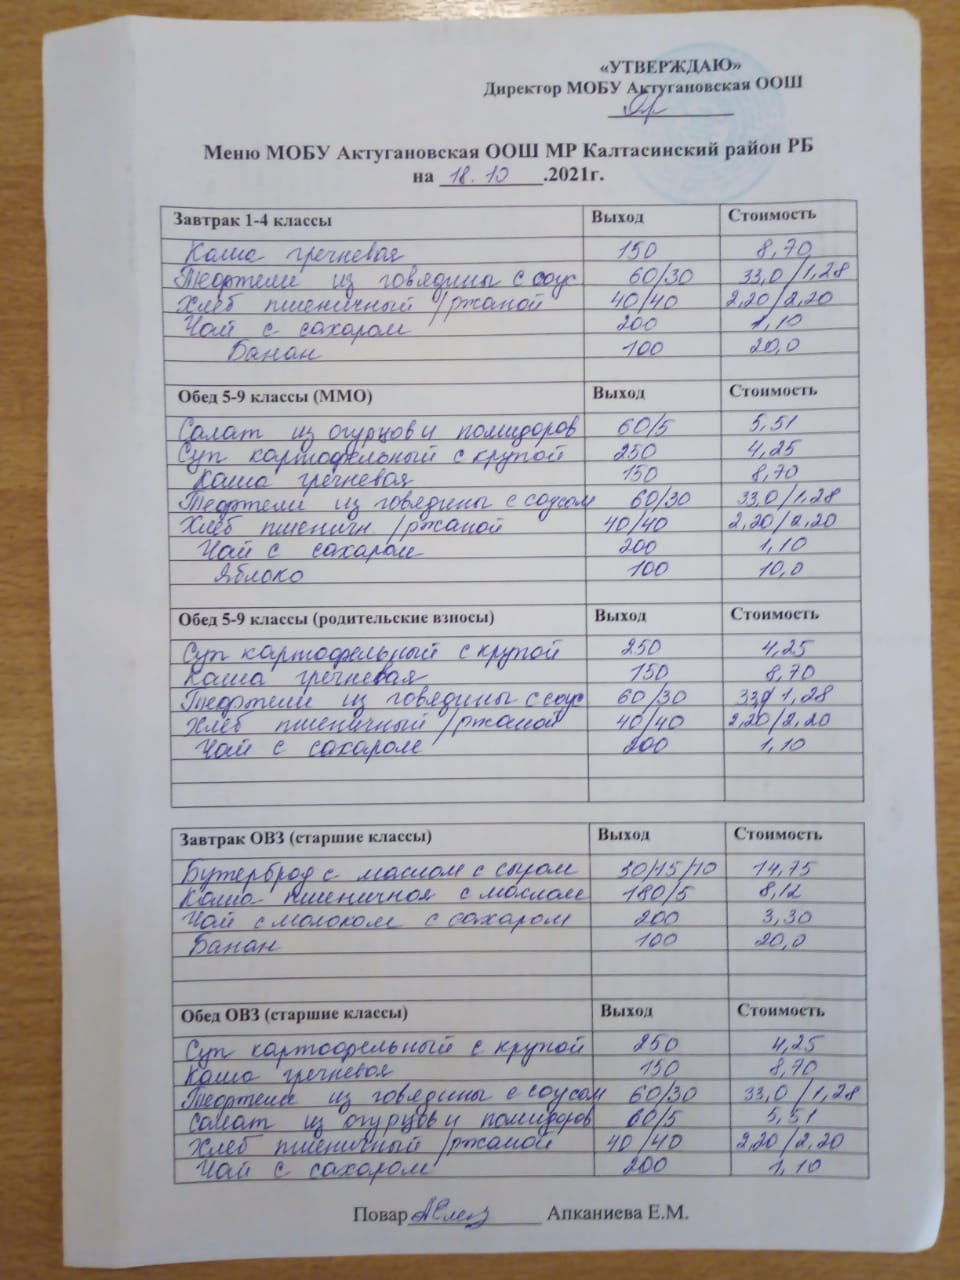 «УТВЕРЖДАЮ»
Директор МОБУ Актугановская ООШ
Меню МОБУ Актугановская ООШ МР Калтасинский район РБ
на 18.10.2021г.
Завтрак 1-4 классы Выход Стоимость
Каша гречневая 150 8,70
Тефтели из говядины с соус 60/30 33,0/1,28
Хлеб пшеничный/ржаной 40/40 2,20/2,20
Чай с сахаром 200 1,10
Банан 100 20,0
Обед 5-9 классы (ММО) Выход Стоимость
Салат из огурцов и помидоров 60/5 5,51
Суп картофельный с крупой 250 4,25
Каша гречневая 150 8,70
Тефтели из говядины с соусом 60/30 33,0/1,28
Хлеб пшеничн/ржаной 40/40 2,20/2,20
Чай с сахаром 200 1,10
Яблоко 100 10,0
Обед 5-9 классы (родительские взносы) Выход Стоимость
Суп картофельный с крупой 250 4,25
Каша гречневая 150 8,70
Тефтели из говядины с соус 60/30 33,0/1,28
Хлеб пшеничный/ржаной 40/40 2,20/2,20
Чай с сахаром 200 1,10
Завтрак ОВЗ (старшие классы) Выход Стоимость
Бутерброд с маслом с сыром 30/15/10 14,75
Каша пшеничная с маслом 180/5 8,12
Чай с молоком с сахаром 200 3,30
Банан 100 20,0
Обед ОВЗ (старшие классы) Выход Стоимость
Суп картофельный с крупой 250 4,25
Каша гречневая 150 8,70
Тефтели из говядины с соусом 60/30 33,0/1,28
Салат из огурцов и помидоров 60/5 5,51
Хлеб пшеничный/ржаной 40/40 2,20/2,20
Чай с сахаром 200 1,10
Повар Апканиева Е.М.